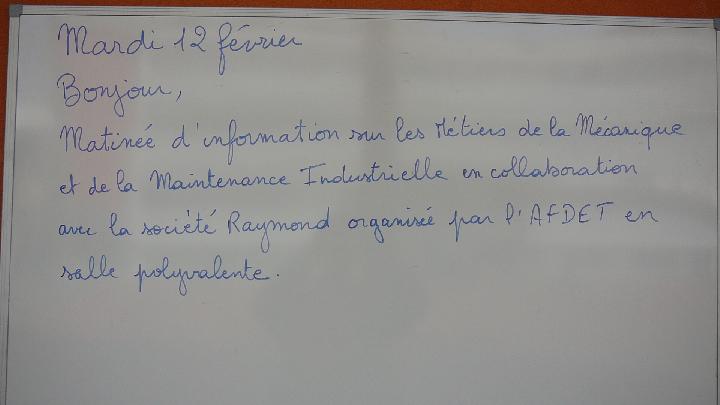 Mardi 12 février
Bonjour,
Matinéé d'information sur les Métiers de la Mécanique
et de la Maintenance Industrielle en collaboration
avec la société Raymond organisée par l'AFDET en
salle polyvalente.